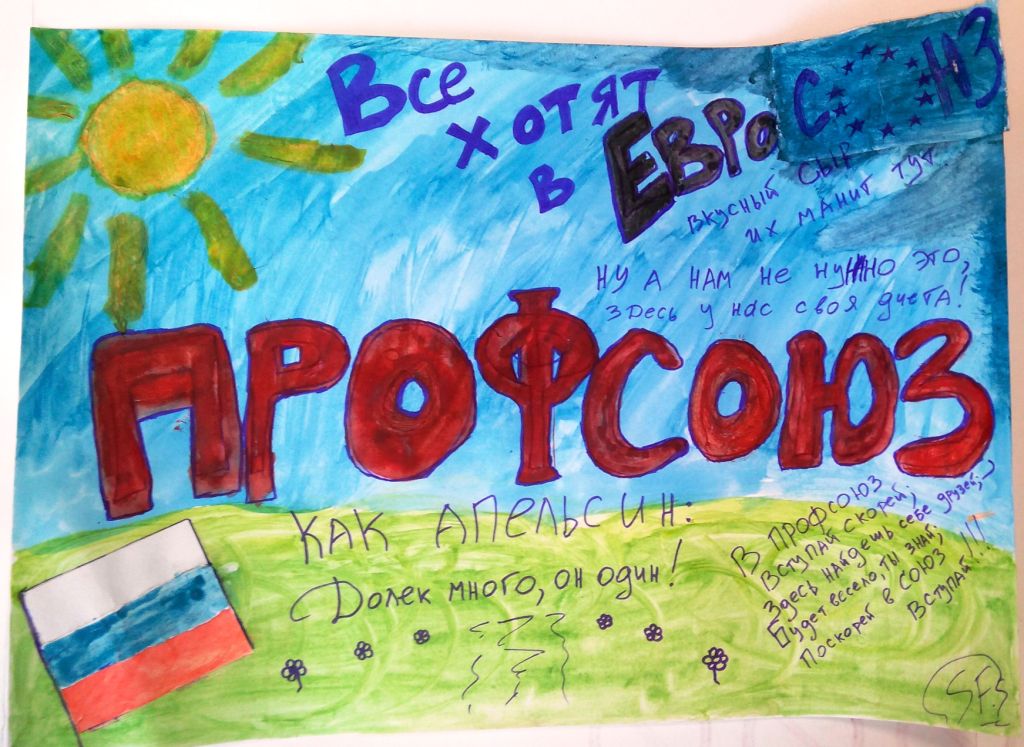 Все
хотят
в ЕВРОСОЮЗ
вкусный сыр
их манит тут
ну а нам не нужно это,
здесь у нас своя диета!
ПРОФСОЮЗ
КАК АПЕЛЬСИН:
Долек много, он один!
В ПРОФСОЮЗ
Вступай скорей,
Здесь найдешь себе друзей;-)
Будет весело, ты знай,
Поскорей в СОЮЗ
Вступай!!!